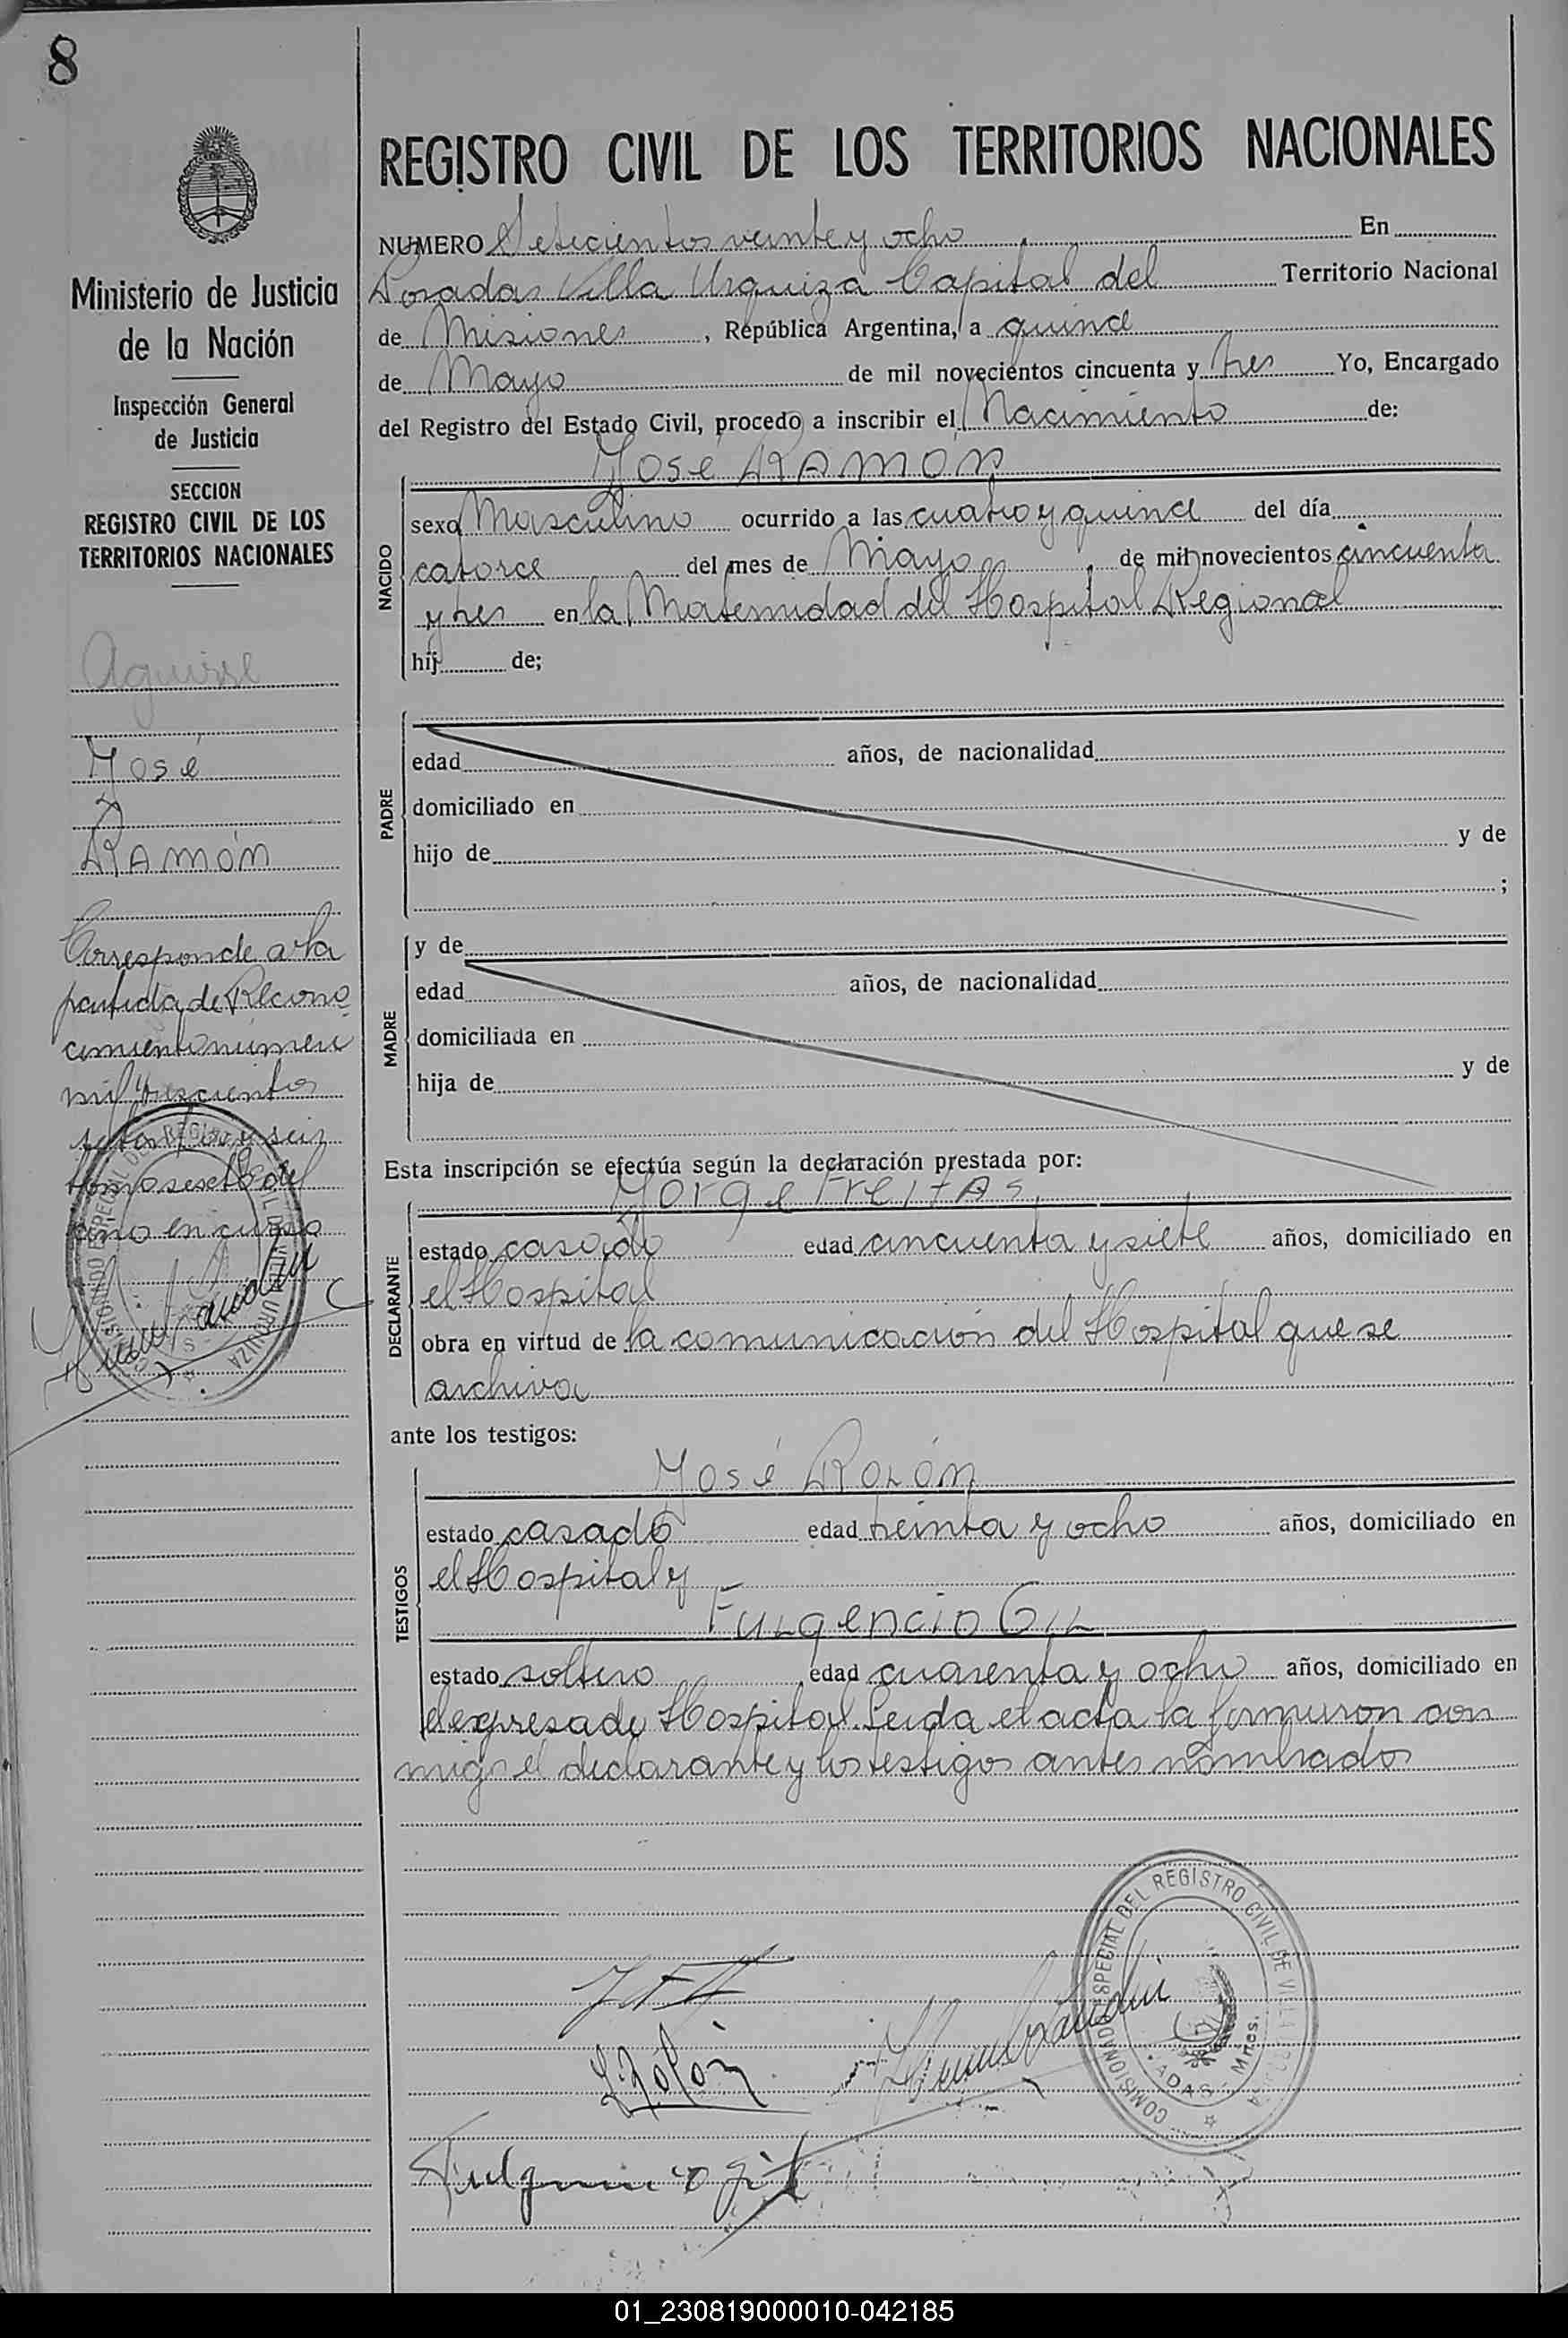 8
Ministerio de Justicia
de la Nación
Inspección General
de Justicia
SECCION
REGISTRO CIVIL DE LOS
TERRITORIOS NACIONALES
Aguirre
José
Ramón
Corresponde a la
partida de Recono
cimiento número
mil trescientos
setenta y seis
tomo sexto del
año en curso
REGISTRO CIVIL DE LOS TERRITORIOS NACIONALES
NUMERO Setecientos veinte y ocho En
Posadas Villa Urquiza Capital del Territorio Nacional
de Misiones, República Argentina, a quince
de Mayo de mil novecientos cincuenta y tres Yo, Encargado
del Registro del Estado Civil, procedo a inscribir el Nacimiento de:
José RAMON
NACIDO
sexo Masculino ocurrido a las cuatro y quince del día
catorce del mes de Mayo de mil novecientos cincuenta
y tres en la Maternidad del Hospital Regional
hij de;
PADRE
edad años, de nacionalidad
domiciliado en
hijo de y de
;
MADRE
y de
edad años, de nacionalidad
domiciliada en
hija de y de
Esta inscripción se efectúa según la declaración prestada por:
Jorge Freitas
DECLARANTE
estado casado edad cincuenta y siete años, domiciliado en
el Hospital
obra en virtud de la comunicación del Hospital que se
archiva
ante los testigos:
José Rolón
TESTIGOS
estado casado edad treinta y ocho años, domiciliado en
el Hospital y
Fulgencio Gil
estado soltero edad cuarenta y ocho años, domiciliado en
el expresado Hospital. Leida el acta la firmaron con
migo el declarante y los testigos antes nombrados
COMISIONADO ESPECIAL DEL REGISTRO CIVIL DE VILLA
Mnes.
Rolón
Fulgencio Gil
01_230819000010-042185